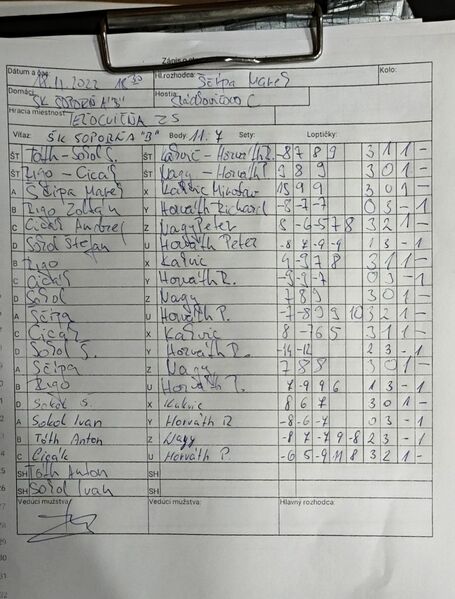 Zápis o st
Dátum a čas: 18.11.2022 16 30 Hl.rozhodca: Ščípa Mareš Kolo:
Domáci: ŠK SOPORŇA "B" Hostia: C
Hracia miestnosť: TELOCVIČŇA ZŠ
Víťaz: ŠK SOPORŇA "B" Body 11:7 Sety: Loptičky:
ŠT Tóth - Sokol S. ŠT Kašvic - Horváth R. -8 7 8 9 3 1 1 -
ŠT Rigo - Cicák ŠT Nagy - Horváth P. 9 8 9 3 0 1 -
A Ščípa Mareš X Kašvic Miroslav 15 9 9 3 0 1 -
B Rigo Zoltán Y Horváth Richard -3 -7 -7 0 3 - 1
C Cicák Andrej Z Nagy Peter 8 -6 -5 7 8 3 2 1 -
D Sokol Štefan U Horváth Peter -8 7 -9 -9 1 3 - 1
B Rigo X Kašvic 4 -9 7 8 3 1 1 -
C Cicák Y Horváth R. -9 -9 -7 0 3 - 1
D Sokol Z Nagy 7 8 9 3 0 1 -
A Ščípa U Horváth P. -7 -8 9 9 10 3 2 1 -
C Cicák X Kašvic 8 -7 6 5 3 1 1 -
D Sokol S. Y Horváth R. -14 -12 2 3 - 1
A Ščípa Z Nagy 7 8 8 3 0 1 -
B Rigo U Horváth P. 7 -9 -9 -6 1 3 - 1
D Sokol S. X Kašvic 8 6 7 3 0 1 -
A Sokol Ivan Y Horváth R -8 -6 -7 0 3 - 1
B Tóth Anton Z Nagy -8 7 -7 9 -8 2 3 - 1
C Cicák U Horváth P -6 5 -9 11 8 3 2 1 -
SH Tóth Anton SH
SH Sokol Ivan SH
Vedúci mužstva: Vedúci mužstva: Hlavný rozhodca: